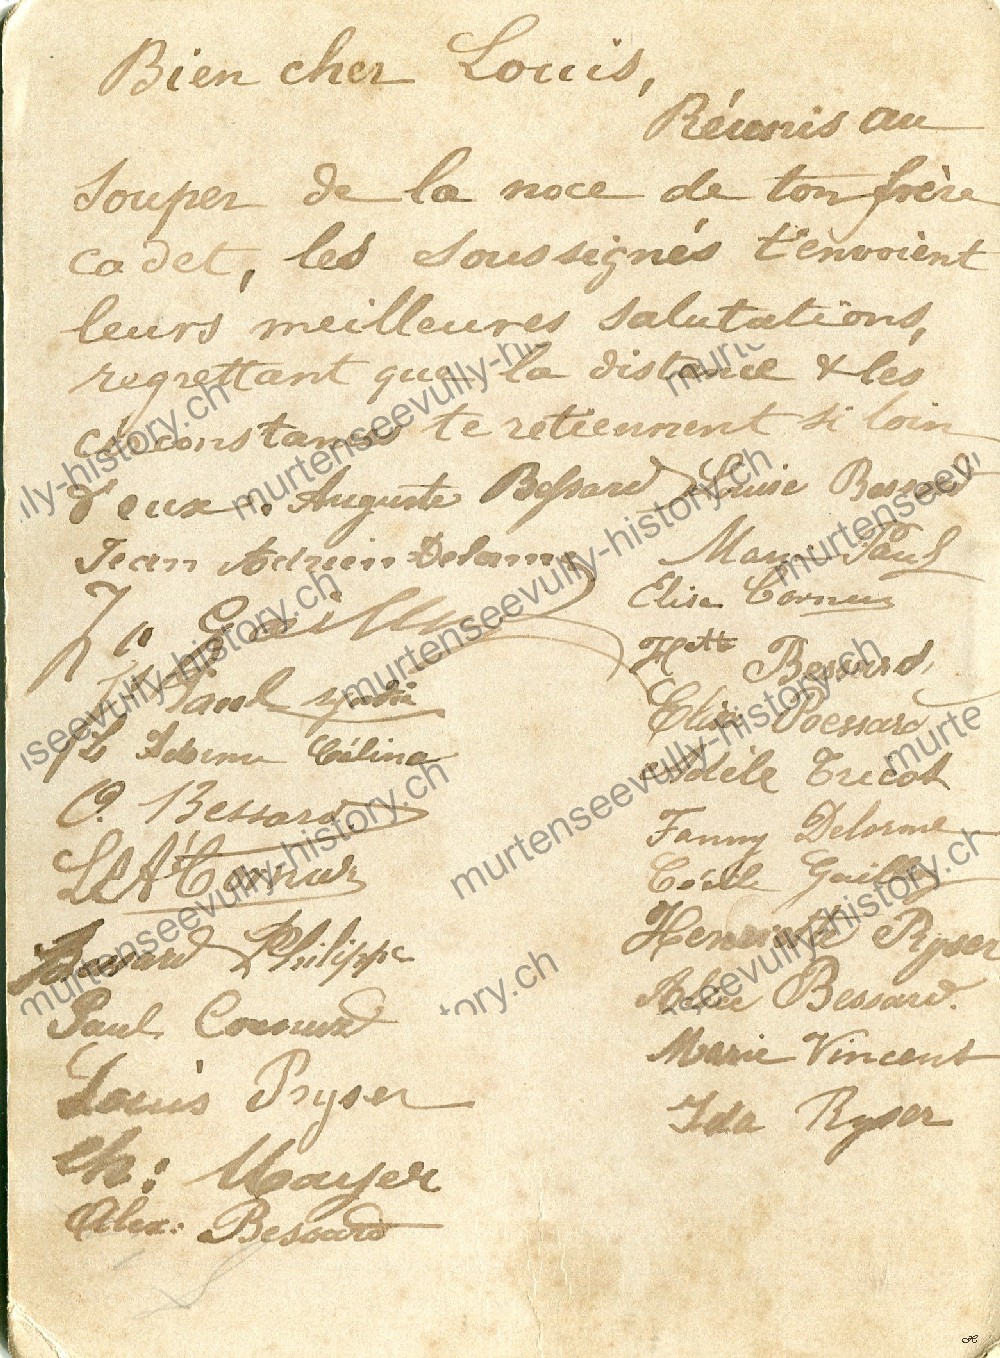 Bien cher Louis,
Réunis au
souper de la noce de ton frère
cadet, les soussignés t'envoient
leurs meilleures salutations,
regrettant que la distance & les
circonstances te retiennent si loin
d'eux. Auguste Bessard Louise Bessard
Jean Adrien Delorme Marie Paul
Elise Cornuz
Gaillet
Htte Bessard,
Paul
Elise Bessard
Célina
Adèle Trecol
O. Bessard
Fanny Delorme
Ls Ad Cornuz
Cécile Gaillet
Bessard Philippe
Henriette Ryser
Paul Cornuz
Bessard.
Louis Ryser
Marie Vincent
Ch: Mayer
Ida Ryser
Alex. Bessard
murtenseevully-history.ch
H